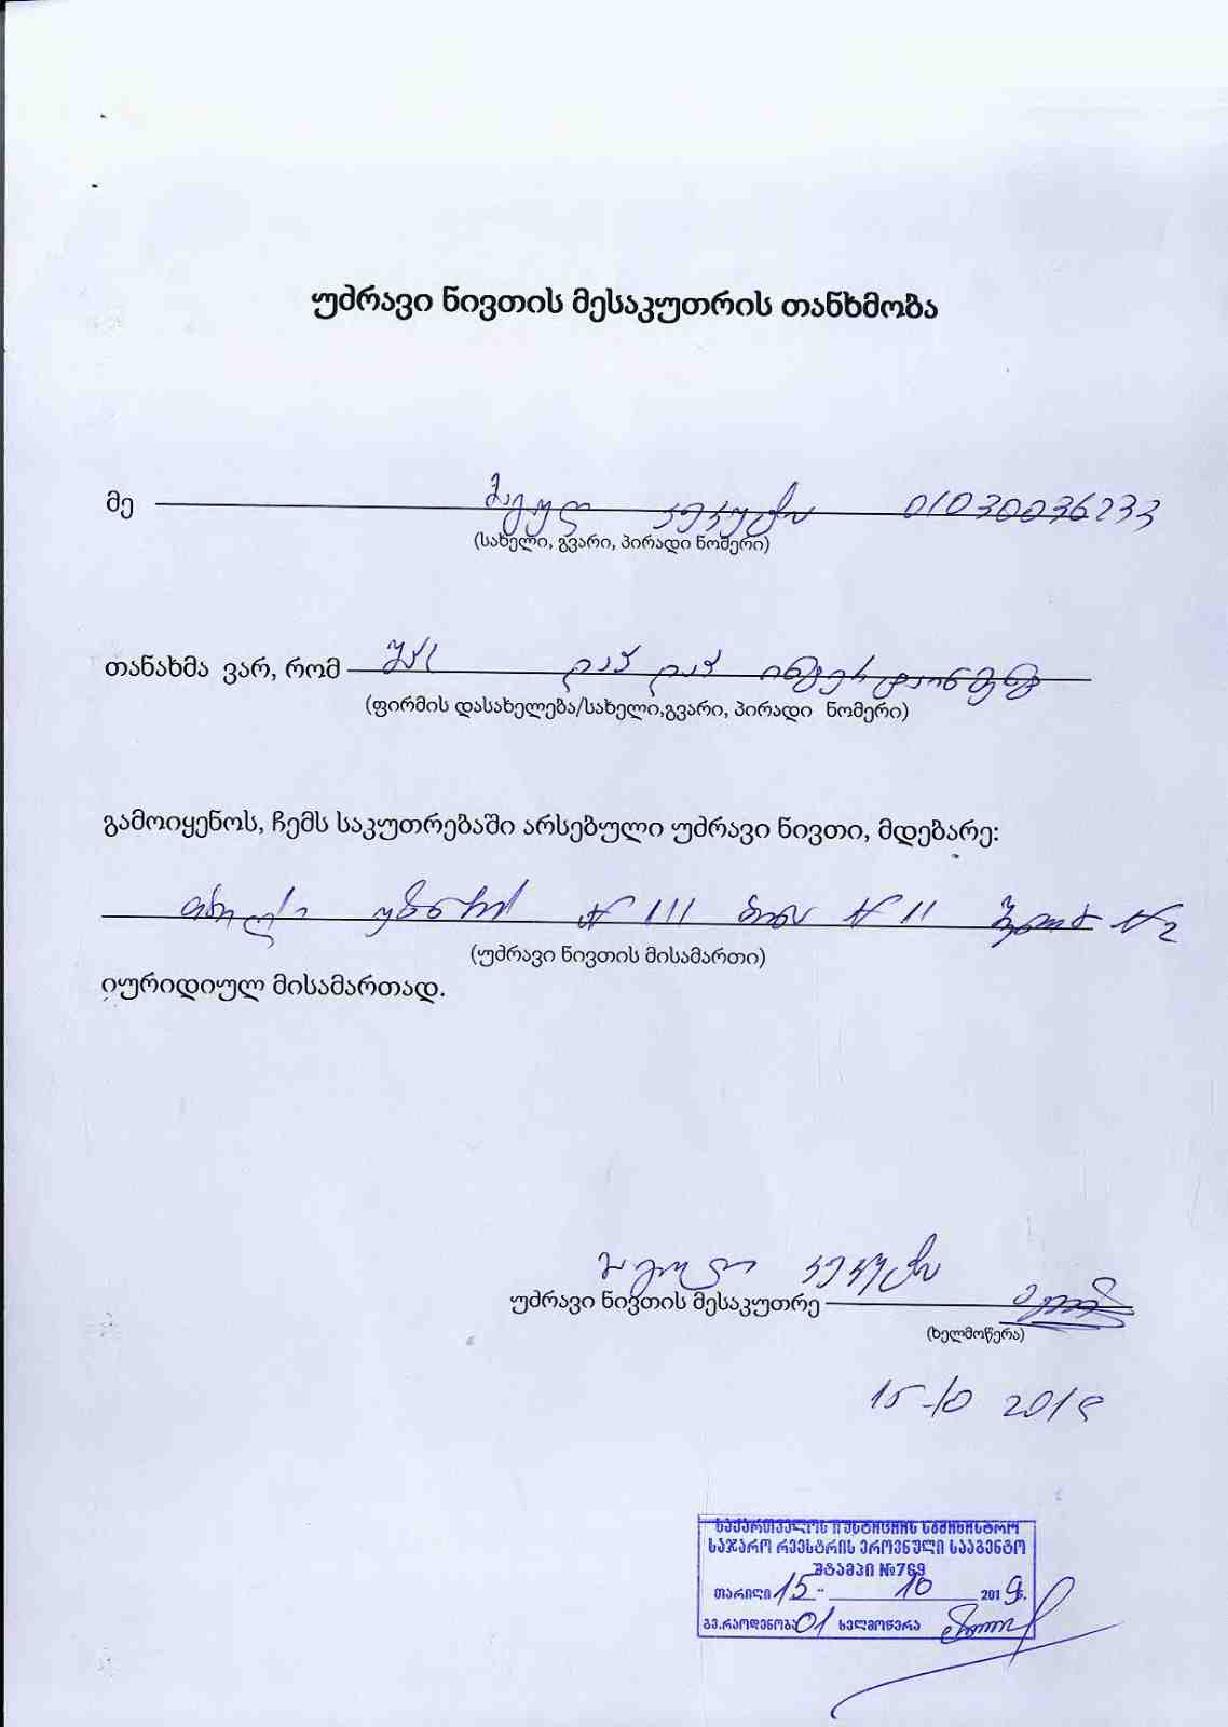 უძრავი ნივთის მესაკუთრის თანხმობა
მე 01030036233
(სახელი, გვარი, პირადი ნომერი)
თანახმა ვარ, რომ შპს
(ფირმის დასახელება/სახელი,გვარი, პირადი ნომერი)
გამოიყენოს, ჩემს საკუთრებაში არსებული უძრავი ნივთი, მდებარე:
N 111 ბინა N 11 N2
(უძრავი ნივთის მისამართი)
იურიდიულ მისამართად.
უძრავი ნივთის მესაკუთრე
(ხელმოწერა)
15-10 2019
საქართველოს იუსტიციის სამინისტრო
საჯარო რეესტრის ეროვნული სააგენტო
შტამპი №769
თარიღი 15 - 10 2019.
გვ.რაოდენობა 01 ხელმოწერა